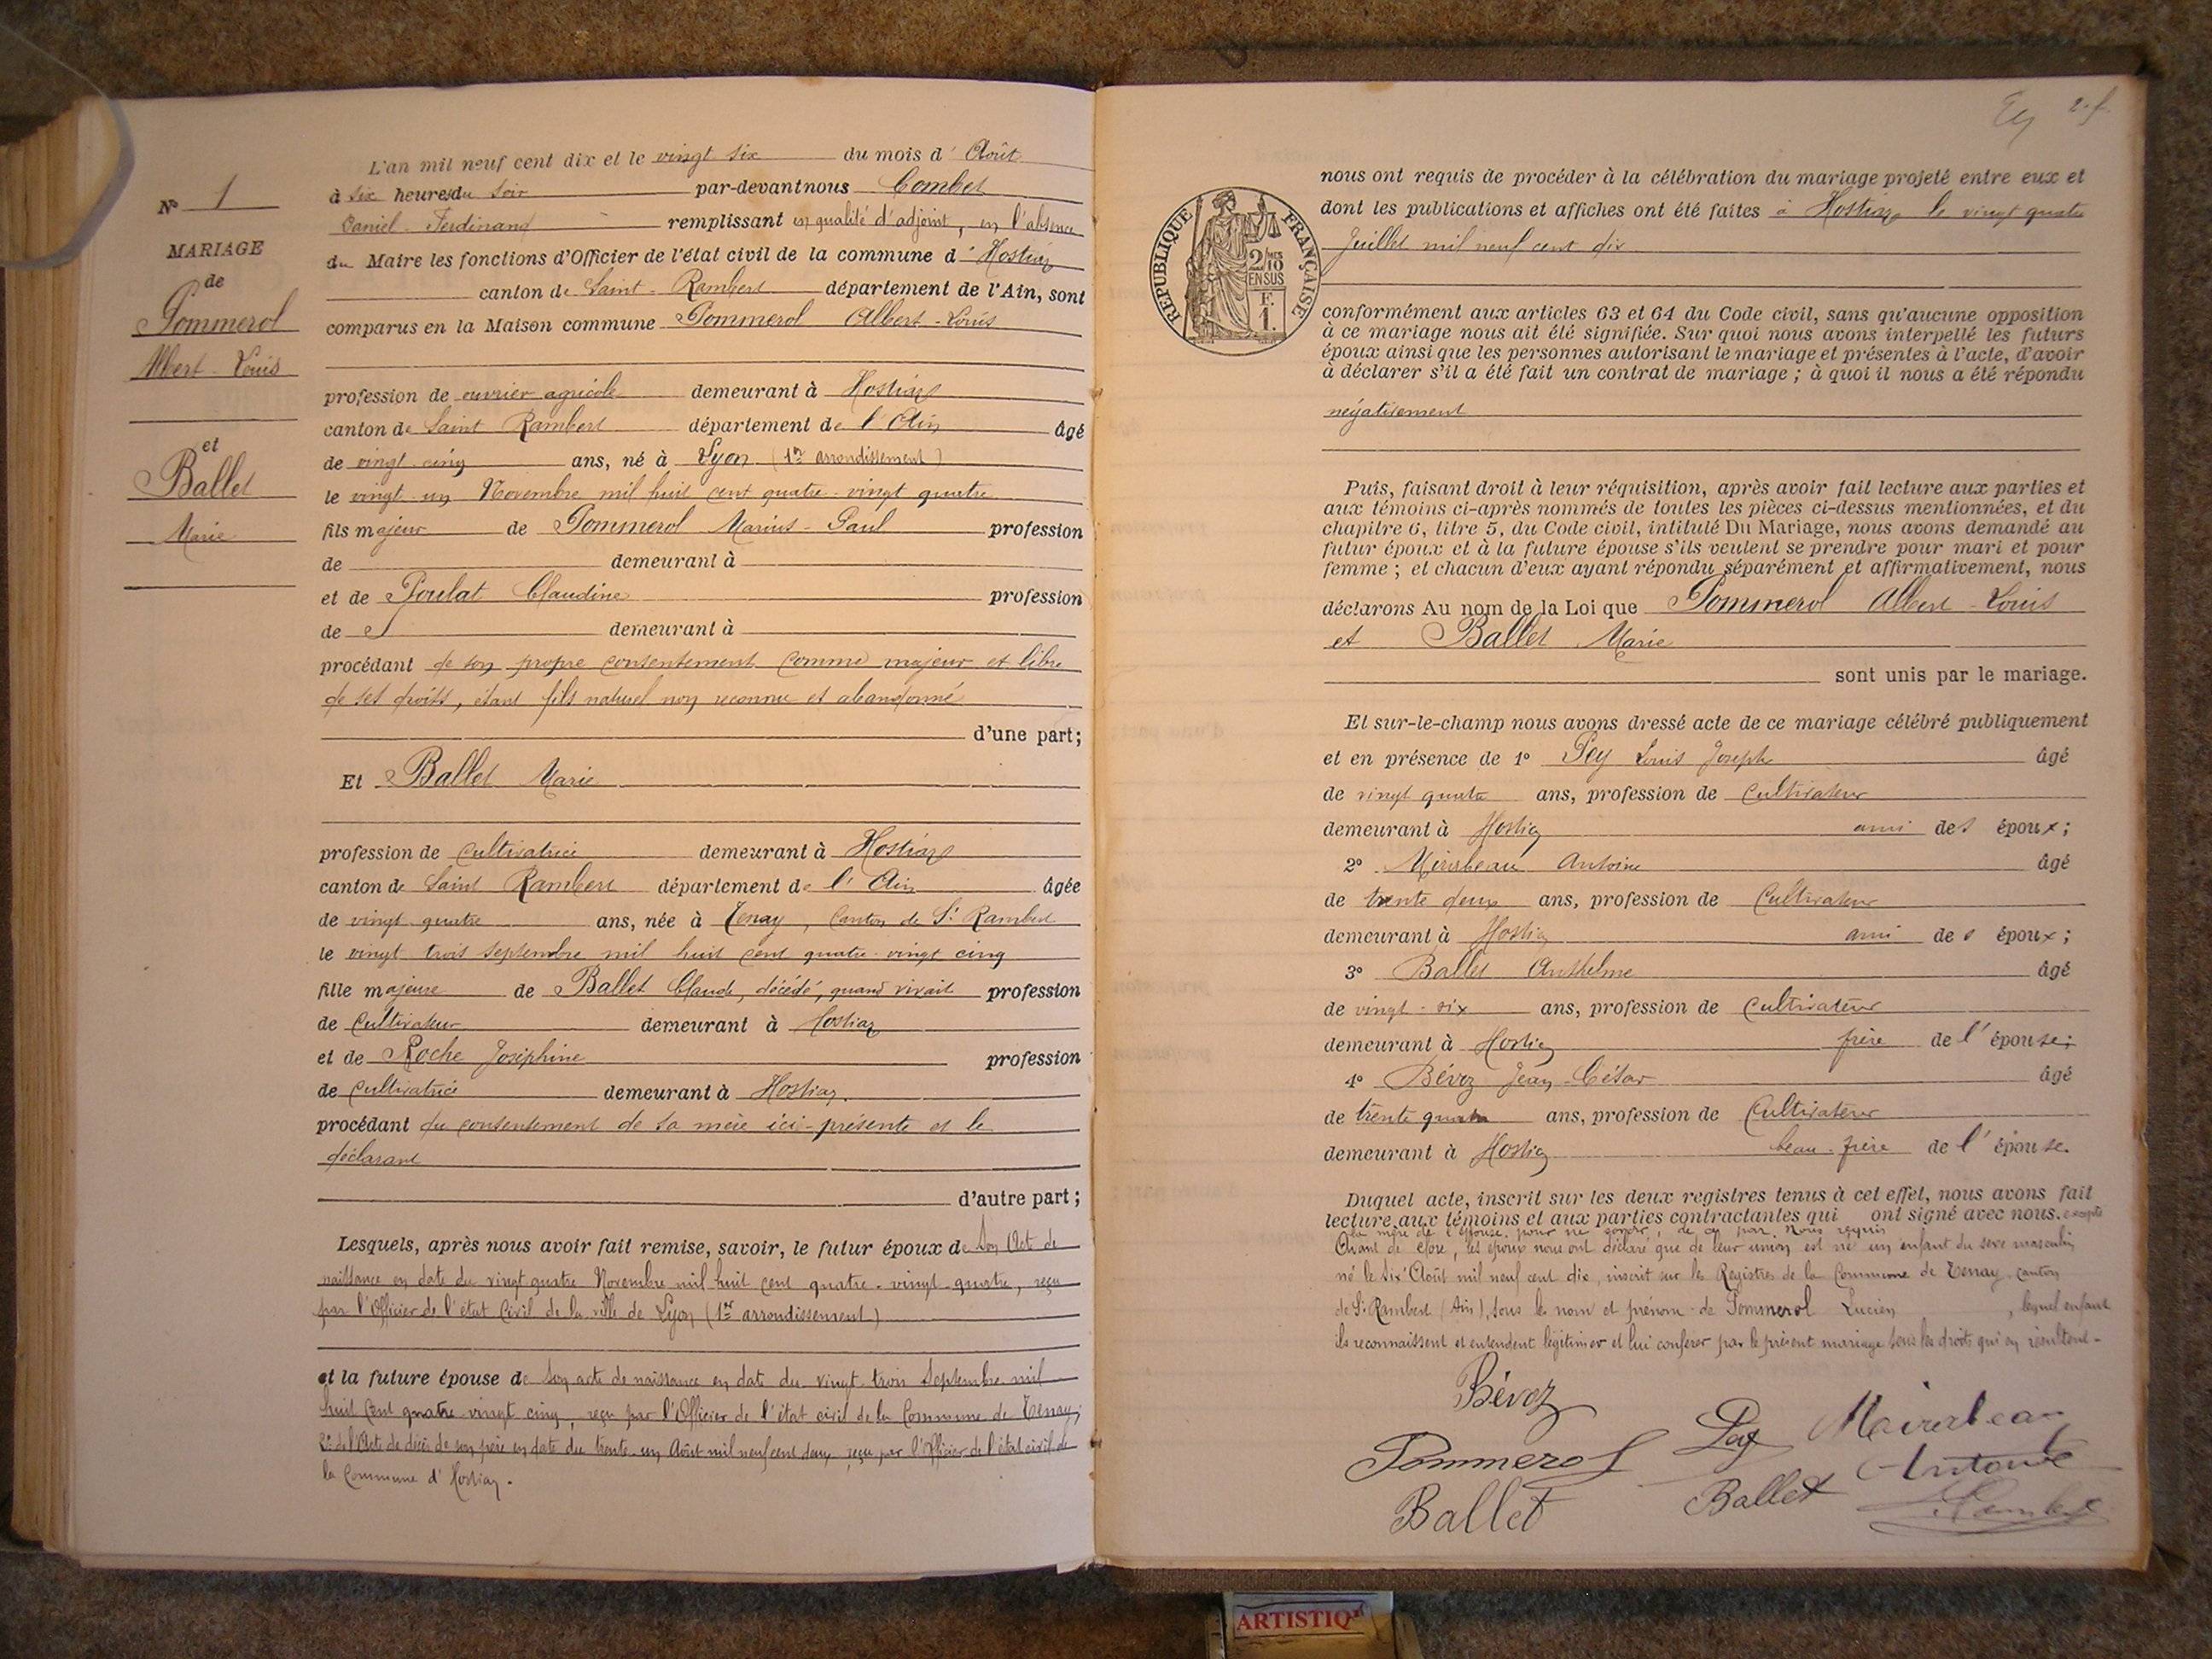 L'an mil neuf cent dix et le vingt six du mois d' Août
à six heures du soir par-devant nous Combet
Daniel Ferdinand remplissant en qualité d'adjoint, en l'absence
du Maire les fonctions d'Officier de l'état civil de la commune d' Hostiaz
canton de Saint-Rambert département de l'Ain, sont
comparus en la Maison commune Pommerol Albert-Louis
profession de ouvrier agricole demeurant à Hostiaz
canton de Saint Rambert département de l'Ain âgé
de vingt-cinq ans, né à Lyon (1er arrondissement)
le vingt-un Novembre mil huit cent quatre-vingt quatre
fils majeur de Pommerol Marius-Paul profession
de demeurant à
et de Poulat Claudine profession
de demeurant à
procédant de son propre consentement comme majeur et libre
de ses droits, étant fils naturel non reconnu et abandonné
d'une part;
Et Ballet Marie
profession de cultivatrice demeurant à Hostiaz
canton de Saint Rambert département de l'Ain âgée
de vingt-quatre ans, née à Tenay, canton de St Rambert
le vingt-trois septembre mil huit cent quatre-vingt cinq
fille majeure de Ballet Claude, décédé, quand vivait profession
de Cultivateur demeurant à Hostiaz
et de Roche Joséphine profession
de cultivatrice demeurant à Hostiaz.
procédant du consentement de sa mère ici-présente et le
déclarant
d'autre part;
Lesquels, après nous avoir fait remise, savoir, le futur époux de son Acte de
naissance en date du vingt quatre Novembre mil huit cent quatre-vingt-quatre, reçu
par l'Officier de l'état Civil de la ville de Lyon (1er arrondissement)
et la future épouse de son acte de naissance en date du vingt-trois Septembre mil
huit cent quatre-vingt cinq, reçu par l'Officier de l'état civil de la Commune de Tenay;
2° de l'Acte de décès de son père en date du trente-un Août mil neuf cent deux, reçu par l'Officier de l'état civil de
la Commune d'Hostiaz.
N° 1
MARIAGE
de
Pommerol
Albert-Louis
et
Ballet
Marie
2. f.
REPUBLIQUE FRANÇAISE
2/10 MES
EN SUS
F.
1.
nous ont requis de procéder à la célébration du mariage projeté entre eux et
dont les publications et affiches ont été faites à Hostiaz le vingt quatre
Juillet mil neuf cent dix
conformément aux articles 63 et 64 du Code civil, sans qu'aucune opposition
à ce mariage nous ait été signifiée. Sur quoi nous avons interpellé les futurs
époux ainsi que les personnes autorisant le mariage et présentes à l'acte, d'avoir
à déclarer s'il a été fait un contrat de mariage ; à quoi il nous a été répondu
négativement
Puis, faisant droit à leur réquisition, après avoir fait lecture aux parties et
aux témoins ci-après nommés de toutes les pièces ci-dessus mentionnées, et du
chapitre 6, titre 5, du Code civil, intitulé Du Mariage, nous avons demandé au
futur époux et à la future épouse s'ils veulent se prendre pour mari et pour
femme ; et chacun d'eux ayant répondu séparément et affirmativement, nous
déclarons Au nom de la Loi que Pommerol Albert-Louis
et Ballet Marie
sont unis par le mariage.
Et sur-le-champ nous avons dressé acte de ce mariage célébré publiquement
et en présence de 1° Pey Louis Joseph âgé
de vingt quatre ans, profession de Cultivateur
demeurant à Hostiaz ami des époux;
2° Mirabeau Antoine âgé
de trente deux ans, profession de Cultivateur
demeurant à Hostiaz ami des époux;
3° Ballet Anthelme âgé
de vingt-six ans, profession de Cultivateur
demeurant à Hostiaz frère de l'épouse;
4° Bévoz Jean-César âgé
de trente quatre ans, profession de Cultivateur
demeurant à Hostiaz beau-frère de l'épouse.
Duquel acte, inscrit sur les deux registres tenus à cet effet, nous avons fait
lecture aux témoins et aux parties contractantes qui ont signé avec nous. excepté
la mère de l'épouse pour ne savoir, de ce par nous requis
Avant de clore, les époux nous ont déclaré que de leur union est né un enfant du sexe masculin
né le six Août mil neuf cent dix, inscrit sur les Registres de la Commune de Tenay, canton
de St Rambert (Ain), sous le nom et prénom de Pommerol Lucien, lequel enfant
ils reconnaissent et entendent légitimer et lui conférer par le présent mariage tous les droits qui en résultent-
Bévoz
Pommerol Pey Mairabeau
Antoine
Ballet Ballet Combet
ARTISTIQ